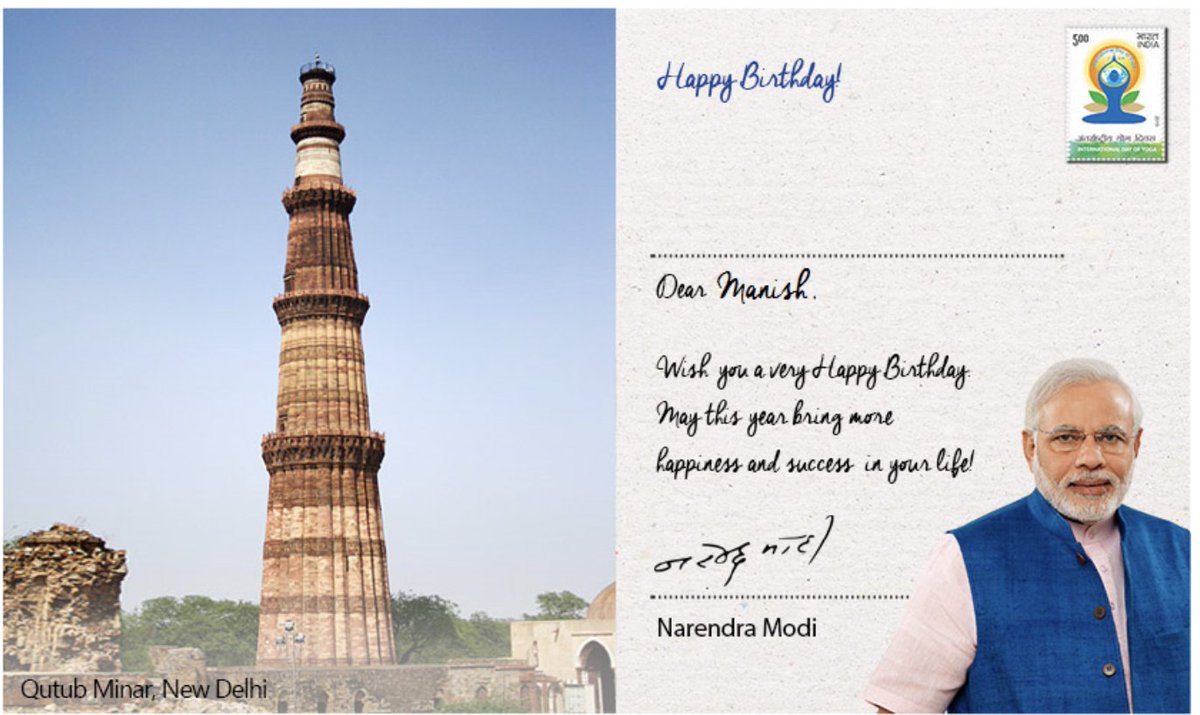 Happy Birthday!
5.00
भारत
INDIA
अंतर्राष्ट्रीय योग दिवस
INTERNATIONAL DAY OF YOGA
Dear Manish,
Wish you a very Happy Birthday.
May this year bring more
happiness and success in your life!
नरेन्द्र मोदी
Narendra Modi
Qutub Minar, New Delhi